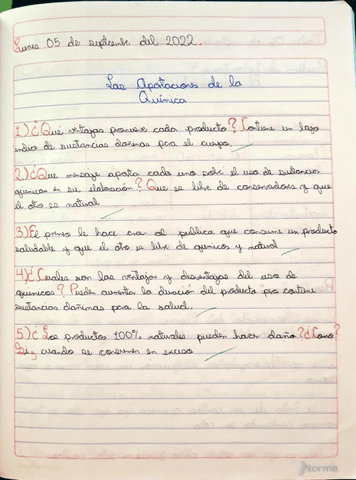 Lunes 05 de septiembre del 2022.
Las Aportaciones de la
Química
1) ¿Qué ventajas promueve cada producto? Contiene un bajo
indice de sustancias dañinas para el cuerpo.
2) ¿Que mensaje aporta cada uno sobre el uso de sustancias
quimicas en su elaboración? Que es libre de conservadores y que
el otro es natural
3) El primero le hace creer al publico que consume un producto
saludable y que el otro es libre de quimicos y natural
4) ¿Cuales son las ventajas y desventajas del uso de
quimicos? Puede aumentar la duración del producto pero contiene
sustancias dañinas para la salud.
5) ¿Los productos 100% naturales pueden hacer daño? ¿Como?
Si, cuando se consumen en exceso
Norma